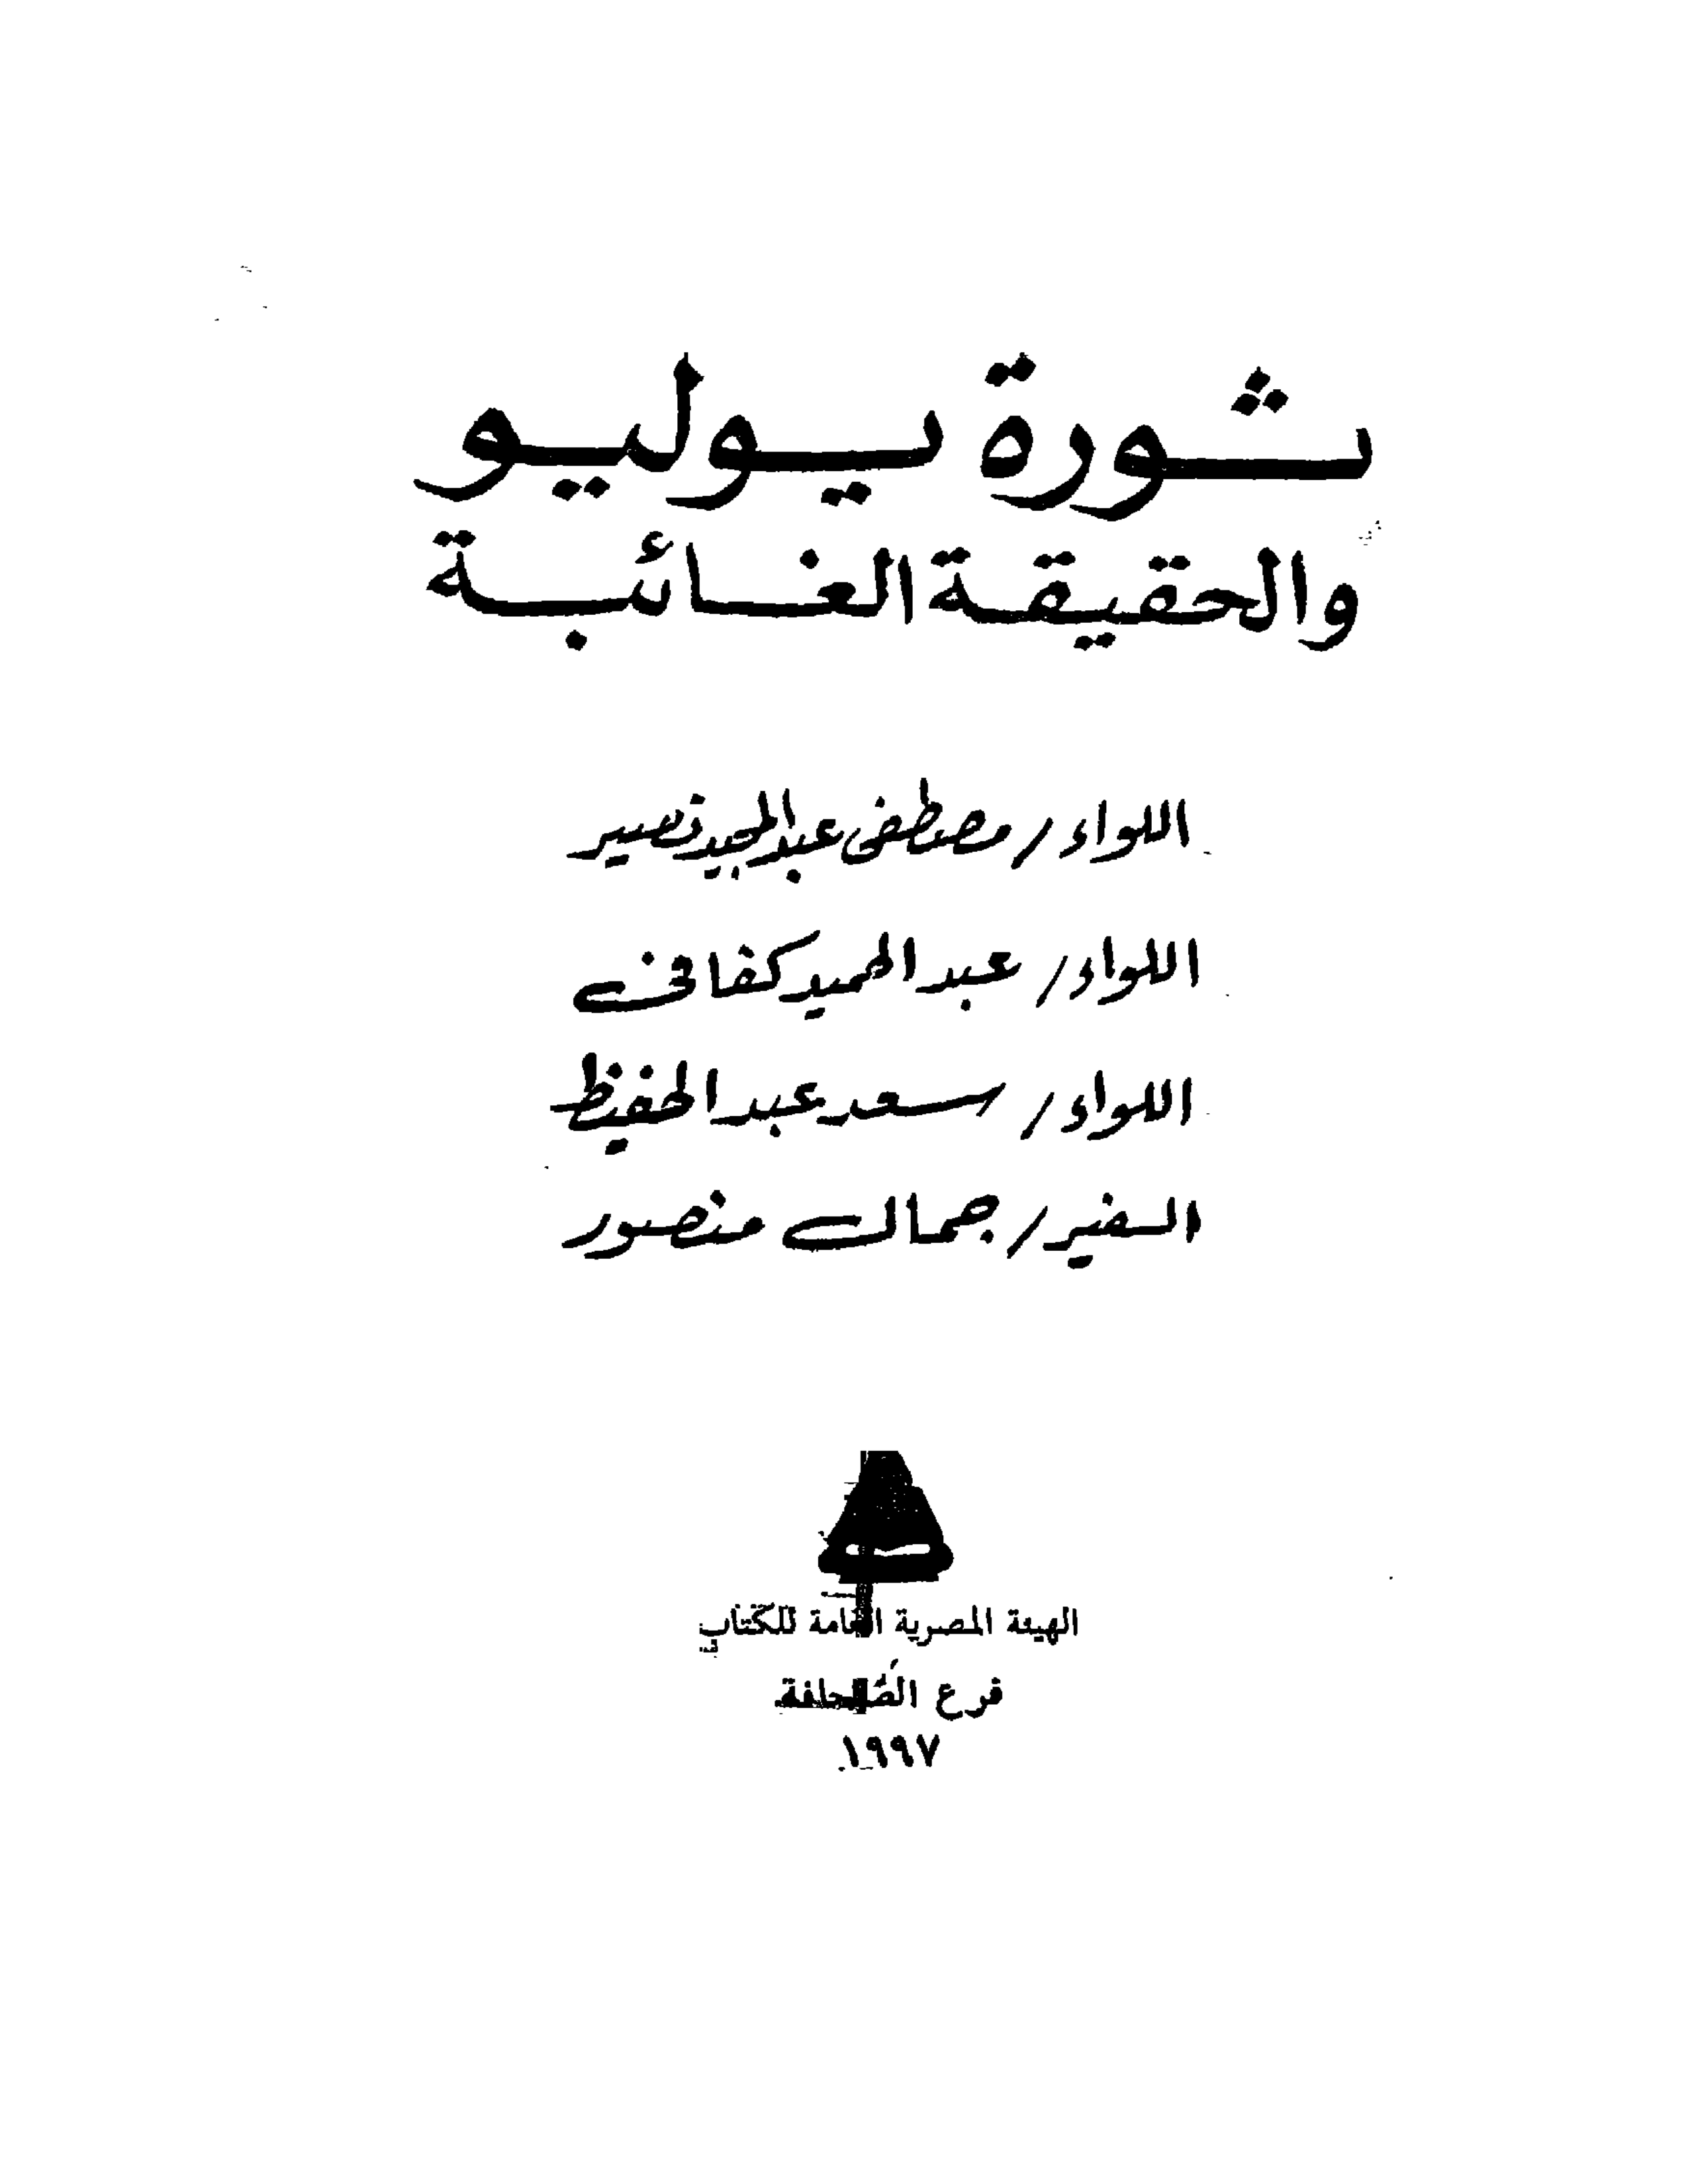 ثورة يوليو
والحقيقة الغائبة
اللواء / مصطفى عبد المجيد نصير
اللواء / عبد الحميد كفافى
اللواء / سعد عبد الحفيظ
السفير / جمال منصور
الهيئة المصرية العامة للكتاب
فرع الصحافة
١٩٩٧